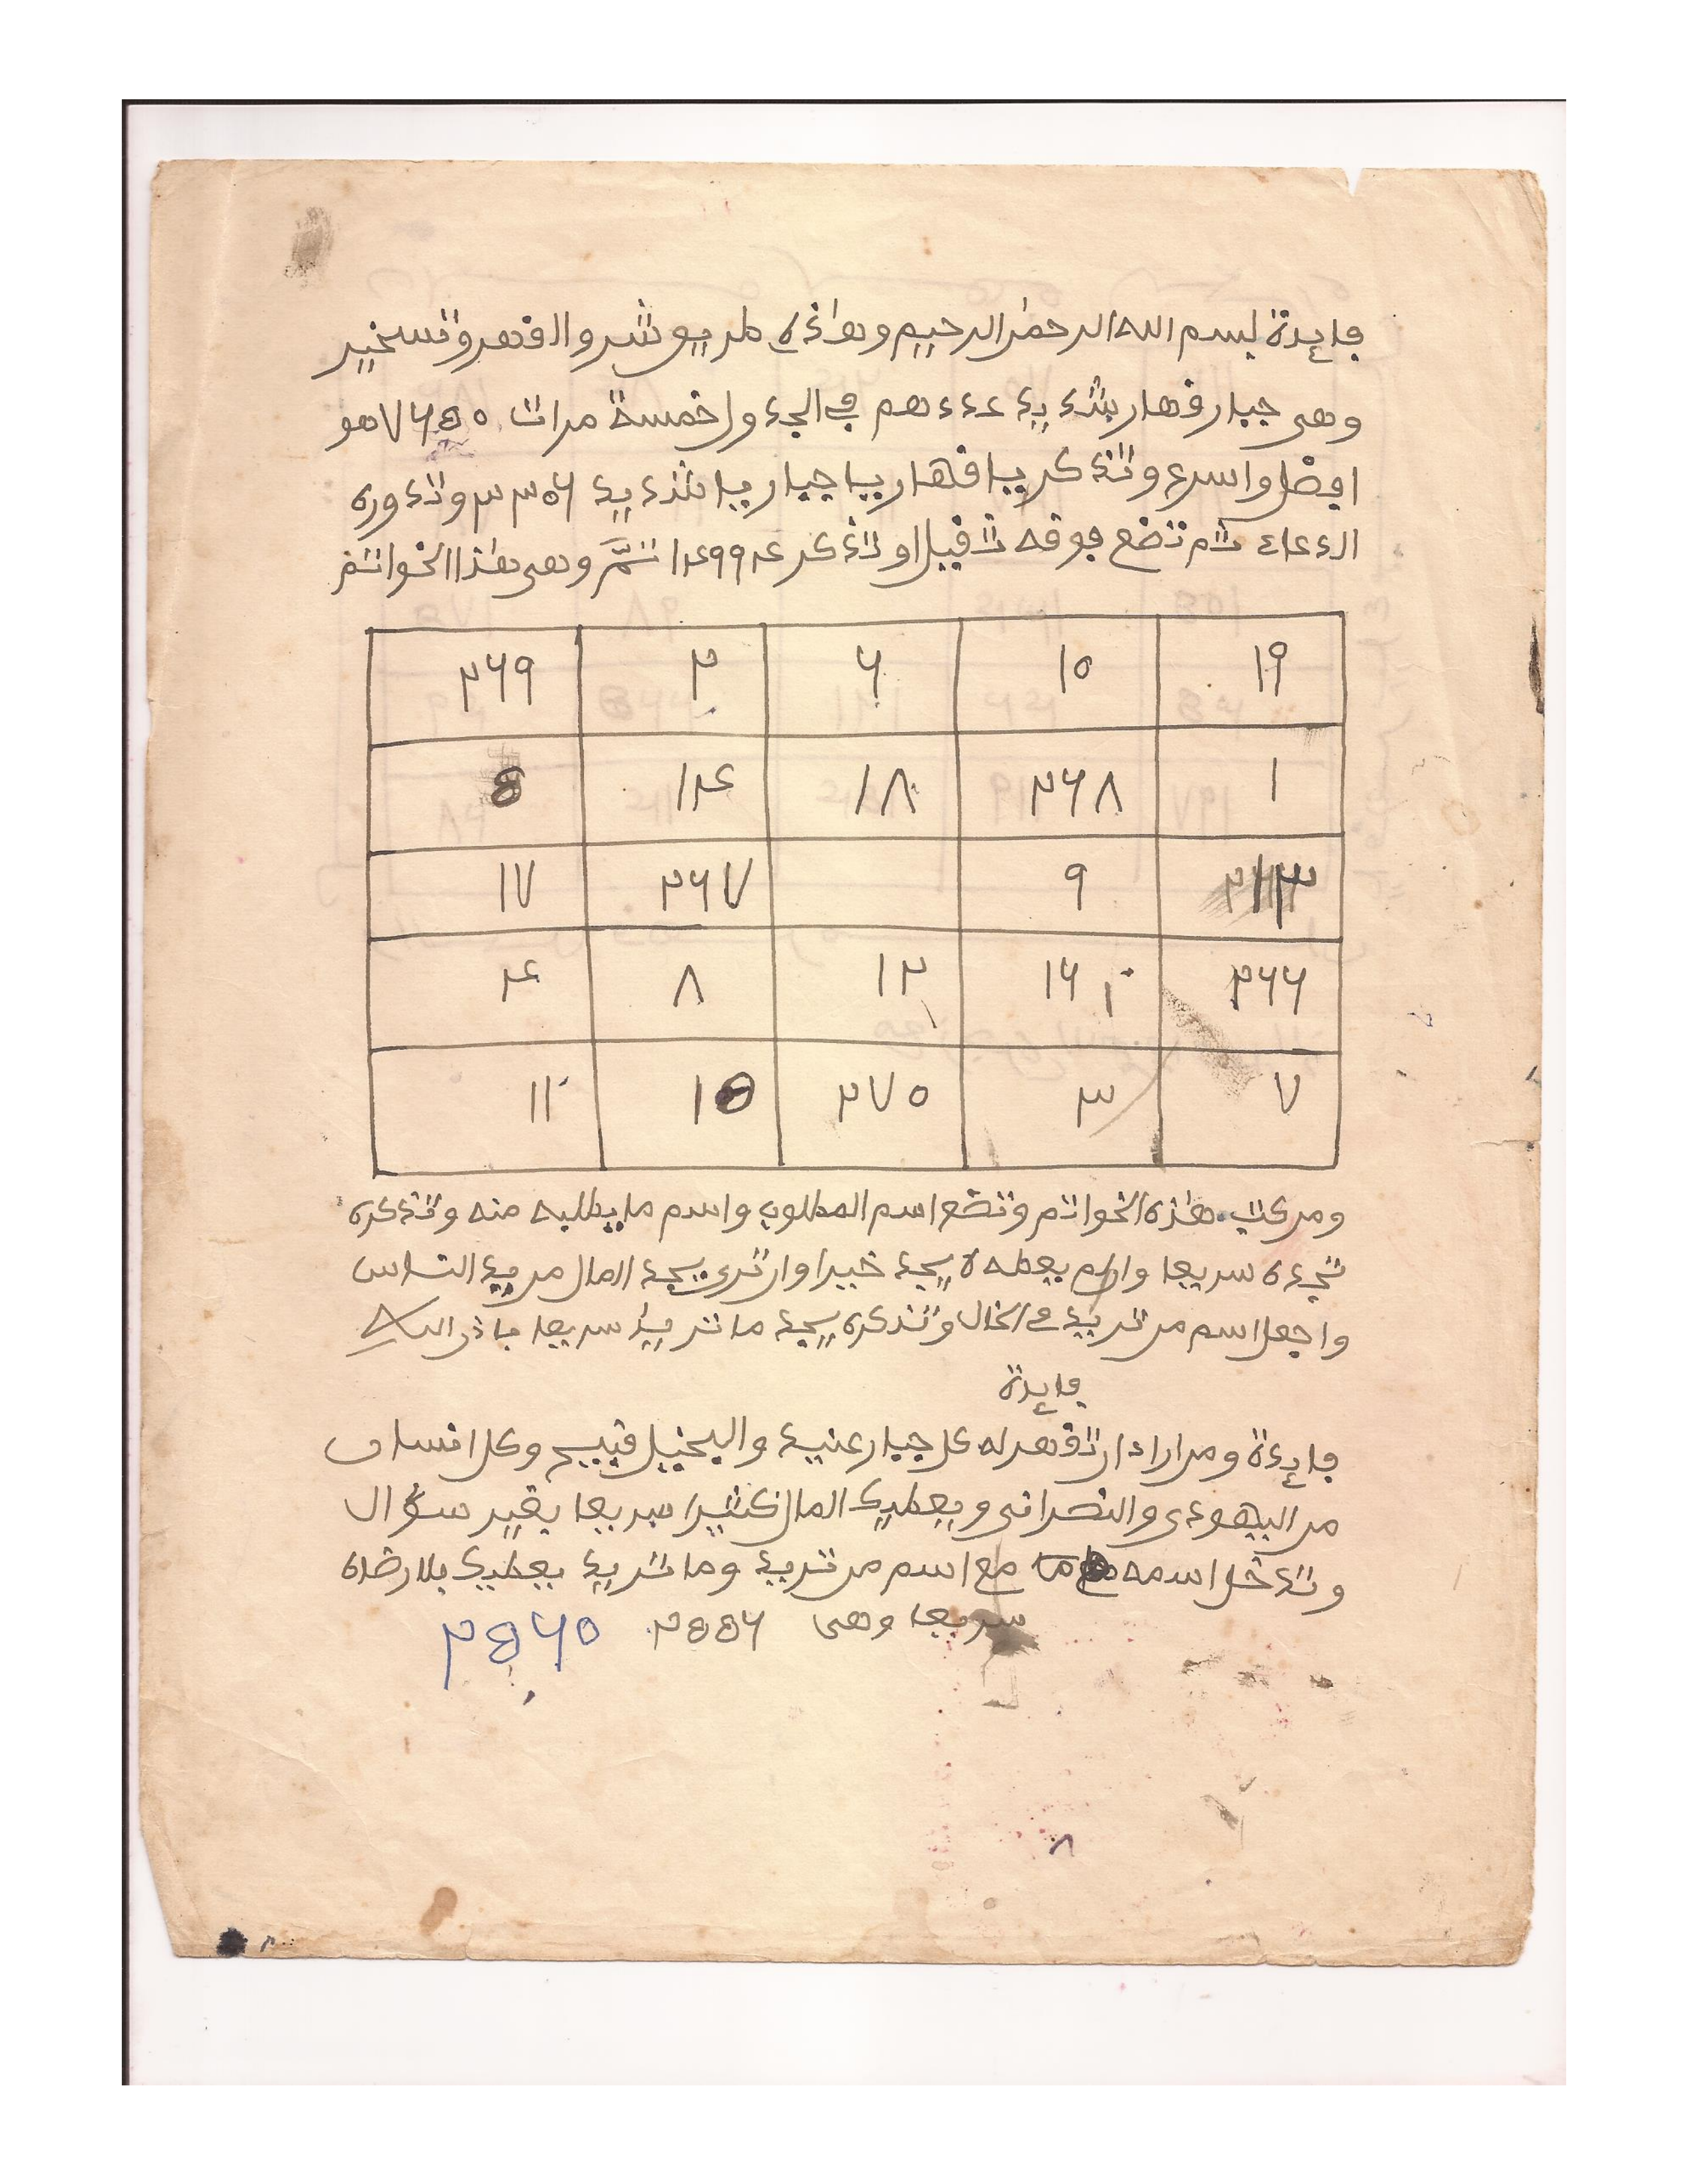 فايدة بسم الله الرحمن الرحيم وهاذه طريق شر والقهر وتسخير
وهى جبار قهار شديد عددهم في الجدول خمسة مرات ٧٦٤٥ هو
افضل واسرع وتذكر يا قهار يا جبار يا شديد ٣٣٥٦ وتدوره
الدعاء ثم تضع فوقه ثقيلا وتذكر ١٤٩٩٤ تمَّ وهى هذا الخواتم
١٩ ١٥ ٦ ٢ ٢٦٩
١ ٢٦٨ ١٨ ١٤ 5
٩ ٢٦٧ ١٧
٢٦٦ ١٦ ١٢ ٨ ٤
٧ ٣ ٢٧٥ ١5 ١١
ومن كتب هذه الخواتم وتضع اسم المطلوب واسم ما يطلبه منه وتذكره
تجده سريعا وان لم يعطه لا يجد خيرا وان ترى يجد المال من يد الناس
واجعل اسم من تريد في الخال وتذكره يجد ما تريد سريعا باذن الله
فايدة
فايدة ومن اراد ان تقهر له كل جبار عنيد والبخيل قبيح وكل انسان
من اليهودى والنصرانى ويعطيك المال كثيرا سريعا بغير سؤال
وتدخل اسمه مع اسم من تريد وما تريد يعطيك بلا رضاه
سريعا وهى ٢55٦ ٢5٦٥
٨